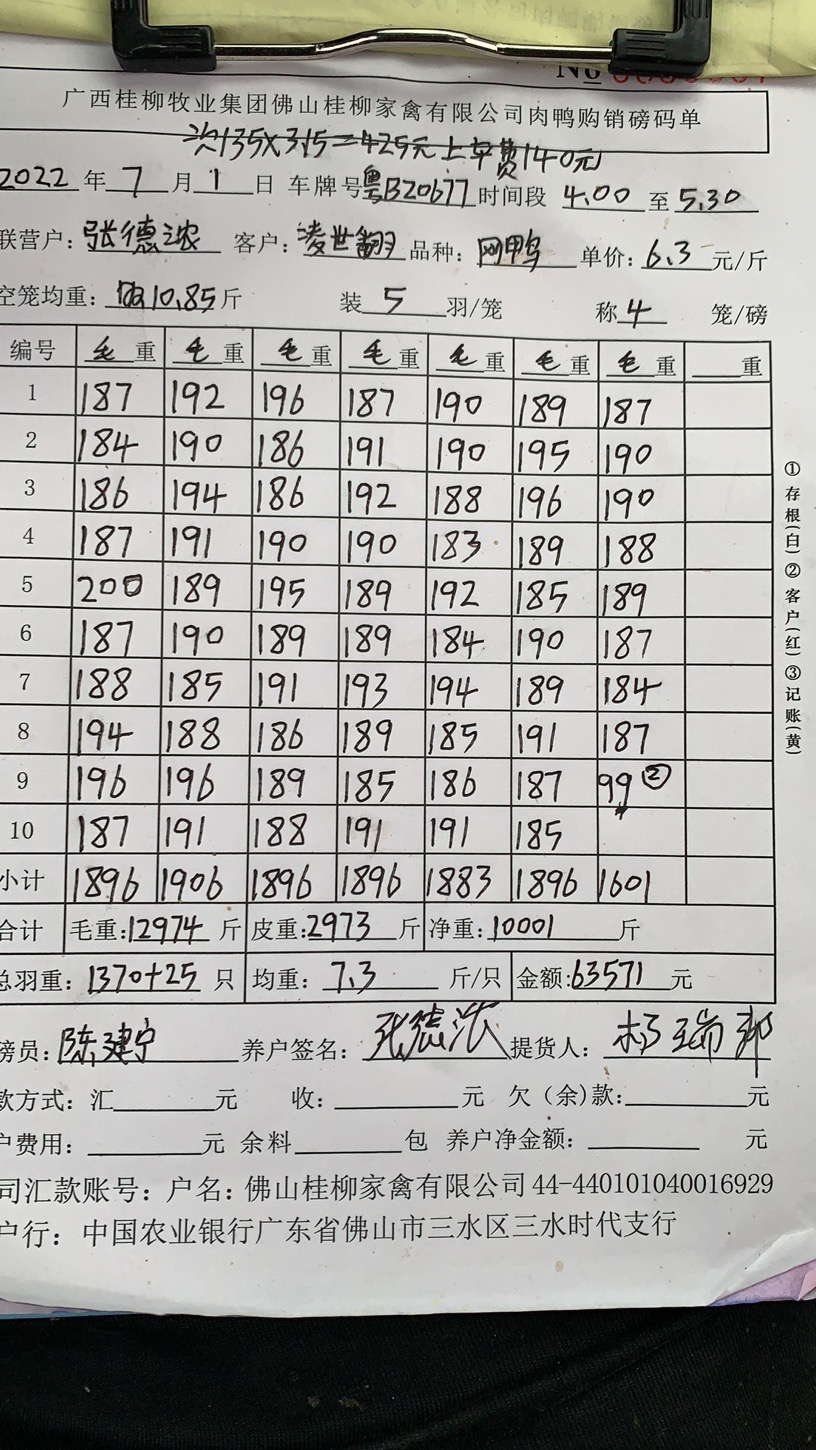 广西桂柳牧业集团佛山桂柳家禽有限公司肉鸭购销磅码单
次135×315=425元 上车费140元
2022年7月1日 车牌号粤B20677 时间段4.00至5.30
联营户:张德浓 客户:凌世翻 品种:网鸭 单价:6.3元/斤
空笼均重:10.85斤 装5羽/笼 称4笼/磅
编号 毛重 毛重 毛重 毛重 毛重 毛重 毛重 重
1 187 192 196 187 190 189 187
2 184 190 186 191 190 195 190
3 186 194 186 192 188 196 190
4 187 191 190 190 183 189 188
5 200 189 195 189 192 185 189
6 187 190 189 189 184 190 187
7 188 185 191 193 194 189 184
8 194 188 186 189 185 191 187
9 196 196 189 185 186 187 99②
10 187 191 188 191 191 185
小计 1896 1906 1896 1896 1883 1896 1601
合计 毛重:12974斤 皮重:2973斤 净重:10001斤
总羽重:1370+25只 均重:7.3斤/只 金额:63571元
磅员:陈建宁 养户签名:张德浓 提货人:
款方式:汇 元 收: 元 欠(余)款: 元
户费用: 元 余料 包 养户净金额: 元
司汇款账号:户名:佛山桂柳家禽有限公司44-440101040016929
户行:中国农业银行广东省佛山市三水区三水时代支行
①存根(白)②客户(红)③记账(黄)